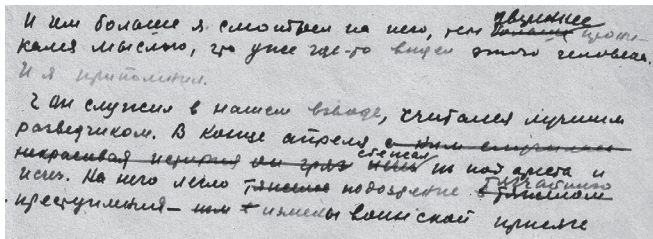 И чем больше я смотрел на него, тем больше прони-
кался мыслью, что уже где-то видел этого человека.
И я припомнил.
Он служил в нашем взводе, считался лучшим
разведчиком. В конце апреля с ним случилась
некрасивая история он сбежал из под ареста и
исчез. На него легло тяжелое подозрение тягчайшего
преступления – измены воинской присяге